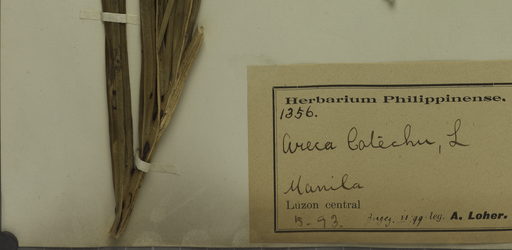 Herbarium Philippinense.
1356.
Areca Catechu, L
Manila
Luzon central
93. leg. A. Loher.